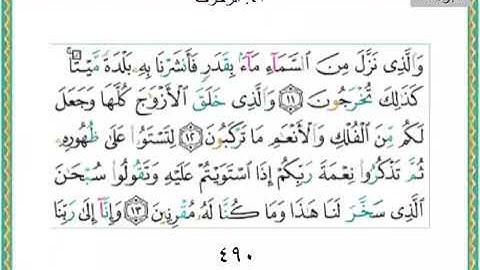 وَالَّذِي نَزَّلَ مِنَ السَّمَاءِ مَاءً بِقَدَرٍ فَأَنشَرْنَا بِهِ بَلْدَةً مَّيْتًا
كَذَٰلِكَ تُخْرَجُونَ ۝١١ وَالَّذِي خَلَقَ الْأَزْوَٰجَ كُلَّهَا وَجَعَلَ
لَكُم مِّنَ الْفُلْكِ وَالْأَنْعَٰمِ مَا تَرْكَبُونَ ۝١٢ لِتَسْتَوُوا عَلَىٰ ظُهُورِهِ
ثُمَّ تَذْكُرُوا نِعْمَةَ رَبِّكُمْ إِذَا اسْتَوَيْتُمْ عَلَيْهِ وَتَقُولُوا سُبْحَٰنَ
الَّذِي سَخَّرَ لَنَا هَٰذَا وَمَا كُنَّا لَهُ مُقْرِنِينَ ۝١٣ وَإِنَّا إِلَىٰ رَبِّنَا
٤٩٠